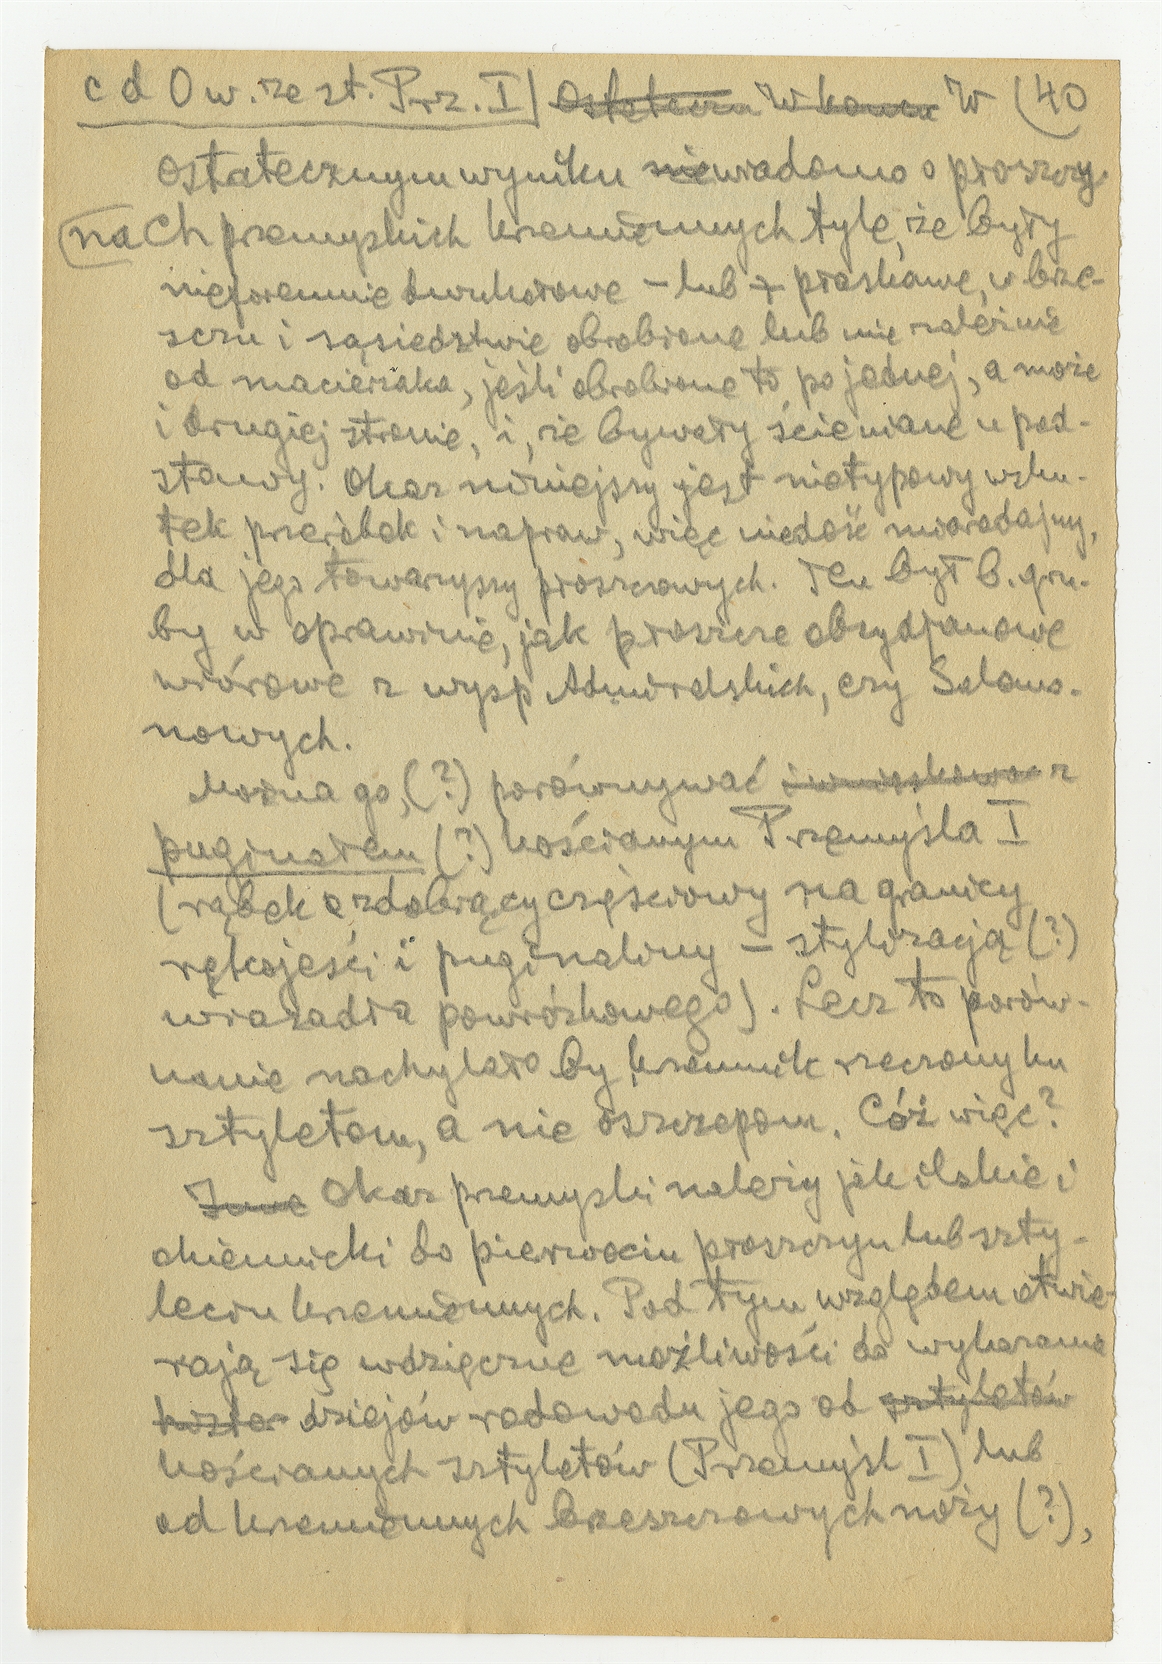 c d O w. ze st. Prz. I) Ostateczn w końcu W (40
ostatecznym wyniku niewiadomo o płoszczy-
nach przemyskich krzemiennych tyle, że były
nieforemnie dwukątowe – lub ± płaskawe, w brze-
szczu i sąsiedztwie obrobione lub nie zależnie
od macierzaka, jeśli obrobione to po jednej, a może
i drugiej stronie, i, że bywały ścieniane u pod-
stawy. Okaz niniejszy jest nietypowy wsku-
tek przeróbek i napraw, więc niedość miarodajny,
dla jego towarzyszy płoszczowych. Ten był b. gru-
by w oprawinie, jak płoszcze obsydjanowe
wiórowe z wysp Admiralskich, czy Salomo-
nowych.
Można go, (?) porównywać i wnioskować z
puginałem (?) kościanym Przemyśla I
(rąbek ozdobiący częściowy na granicy
rękojeści i puginaliny – stylizacją (?)
wiązadła powrózkowego). Lecz to porów-
nanie nachylało by krzemik rzeczony ku
sztyletom, a nie oszczepom. Cóż więc?
Inne Okaz przemyski należy jak ilskie i
chiemicki do pierwocin płoszczyn lub szty-
lecin krzemiennych. Pod tym względem otwie-
rają się wdzięczne możliwości do wykazania
histor dziejów rodowodu jego od sztyletów
kościanych sztyletów (Przemyśl I) lub
od krzemiennych brzeszczowych noży (?),